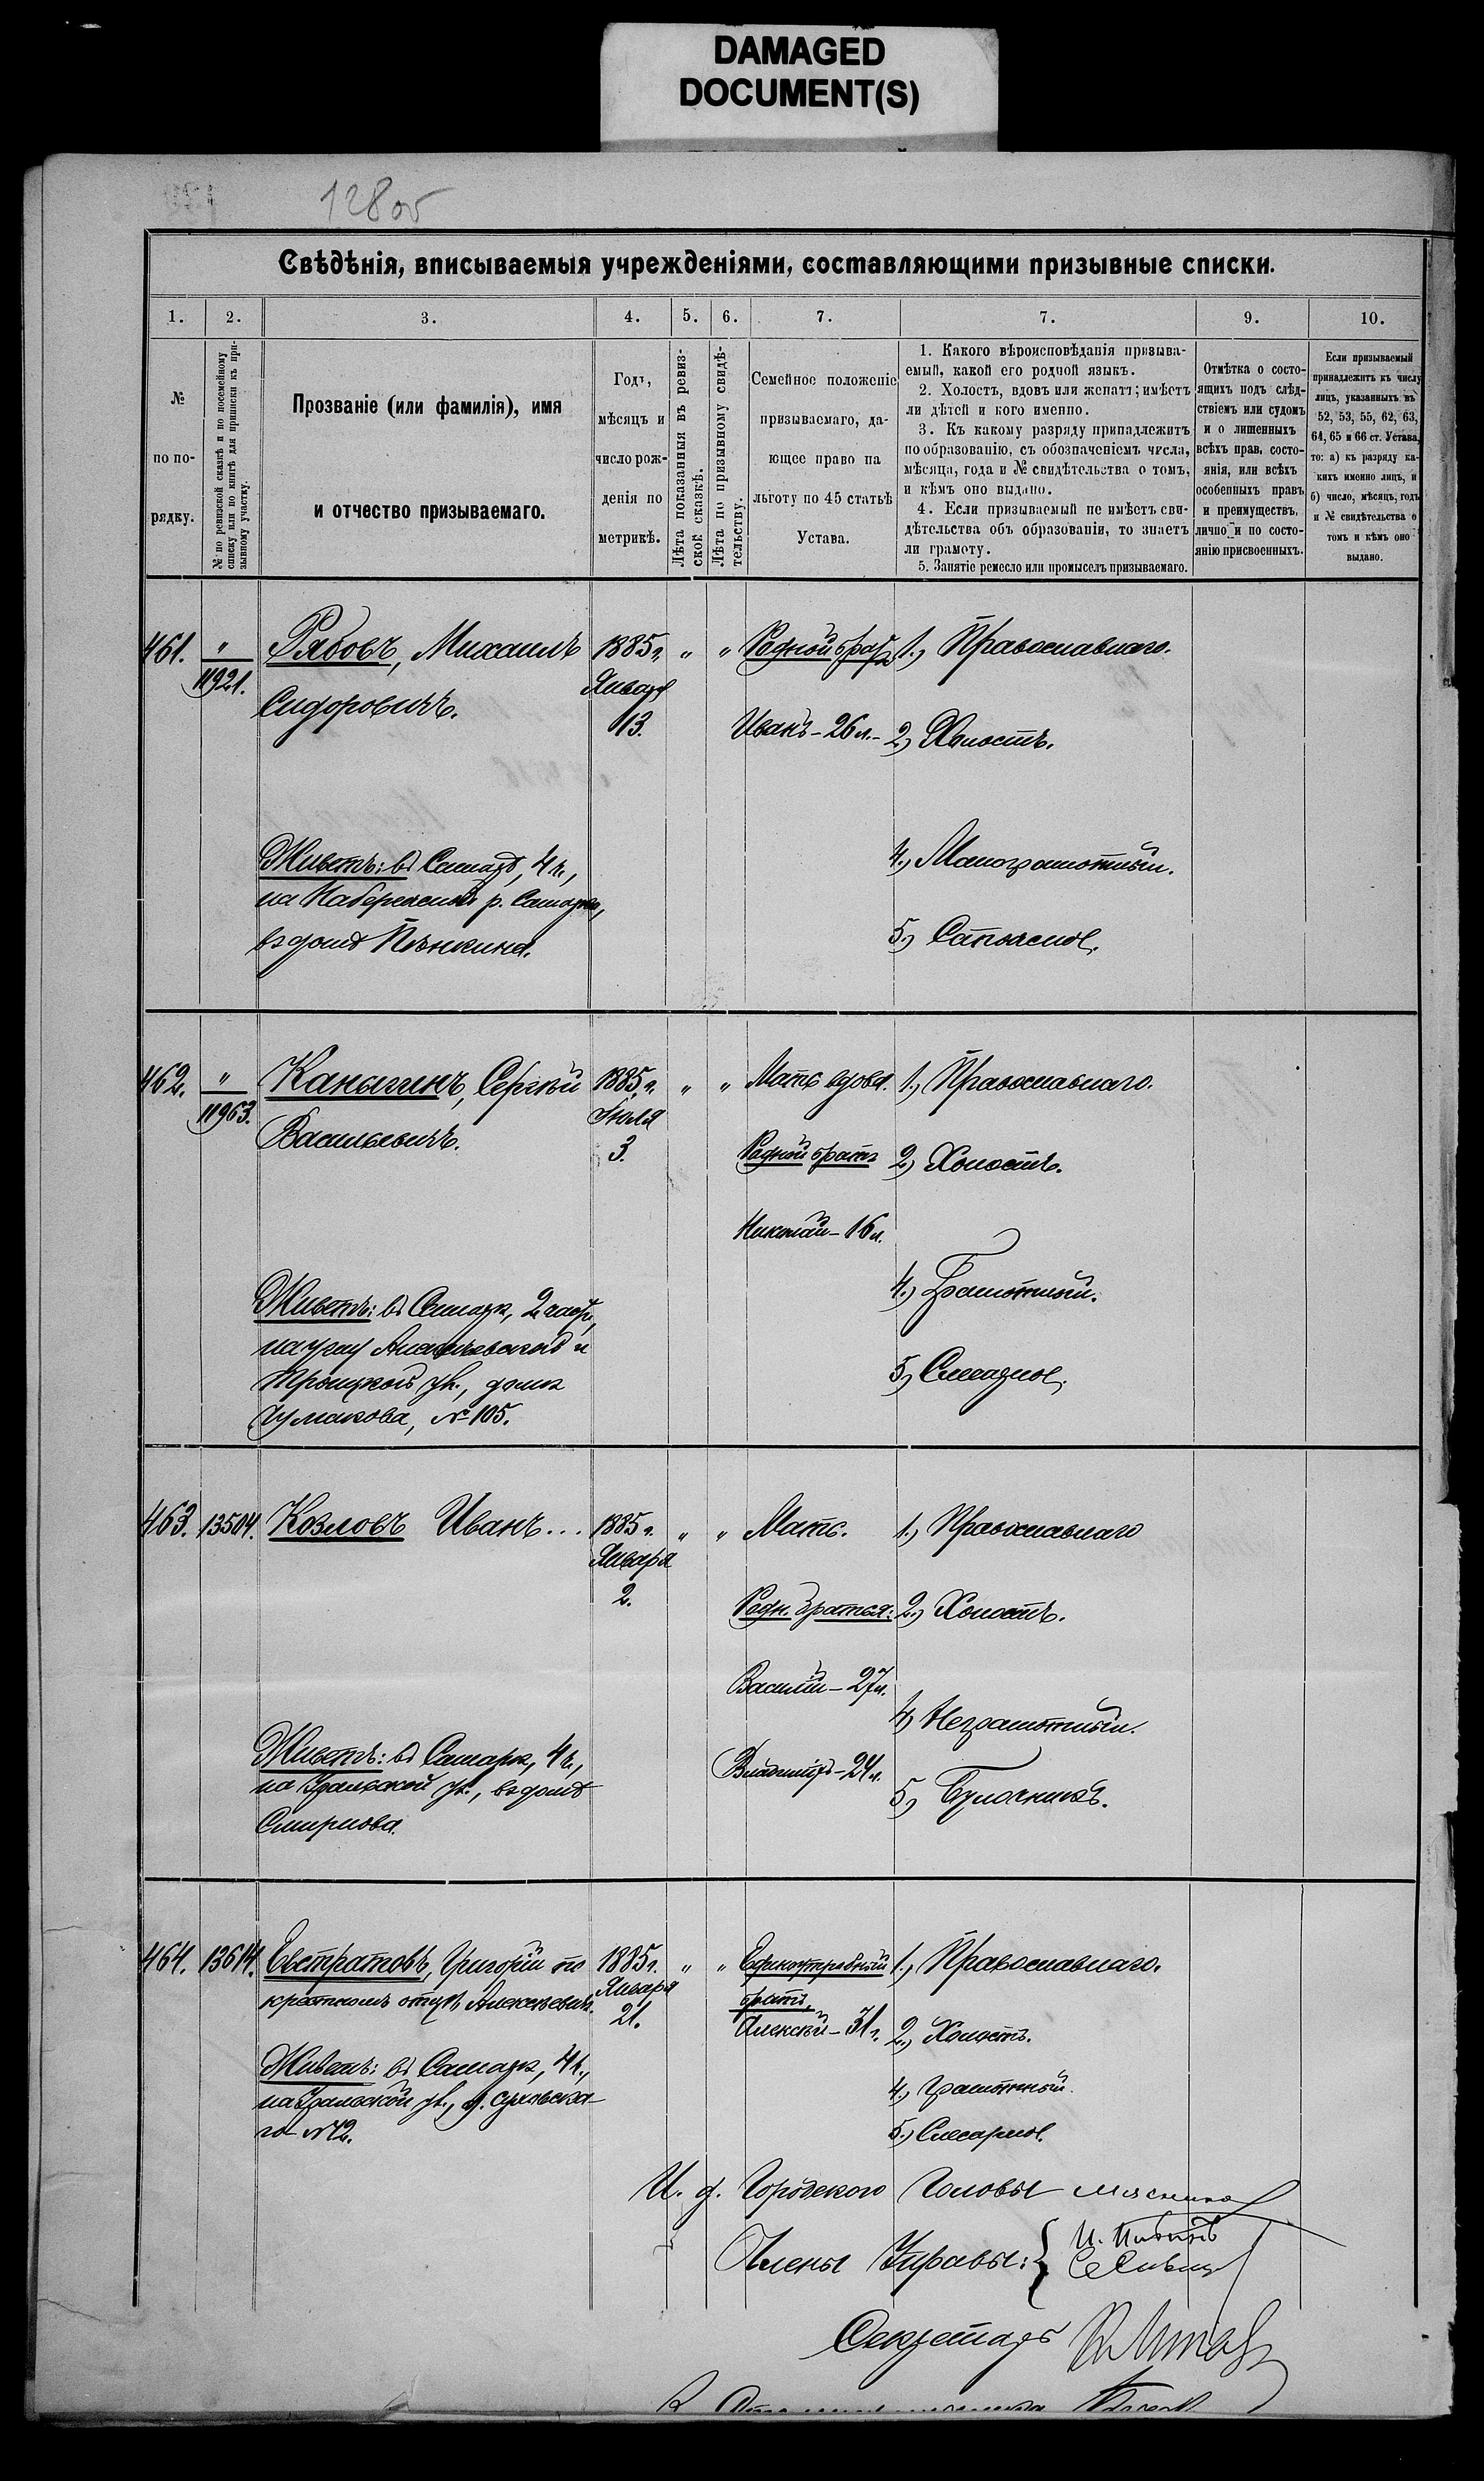 DAMAGED
DOCUMENT(S)
128об
Свѣдѣнія, вписываемыя учрежденіями, составляющими призывные списки.
1. 2. 3. 4. 5. 6. 7. 7. 9. 10.
№
по по-
рядку.
№ по ревизской сказкѣ и по посемейному
списку или по книгѣ для приписки къ при-
зывному участку.
Прозваніе (или фамилія), имя
и отчество призываемаго.
Годъ,
мѣсяцъ и
число рож-
денія по
метрикѣ.
Лѣта показанныя въ ревиз-
ской сказкѣ.
Лѣта по призывному свидѣ-
тельству.
Семейное положеніе
призываемаго, да-
ющее право на
льготу по 45 статьѣ
Устава.
1. Какого вѣроисповѣданія призыва-
емый, какой его родной языкъ.
2. Холостъ, вдовъ или женатъ; имѣетъ
ли дѣтей и кого именно.
3. Къ какому разряду принадлежитъ
по образованію, съ обозначеніемъ числа,
мѣсяца, года и № свидѣтельства о томъ,
и кѣмъ оно выдано.
4. Если призываемый не имѣетъ сви-
дѣтельства объ образованіи, то знаетъ
ли грамоту.
5. Занятіе ремесло или промыселъ призываемаго.
Отмѣтка о состо-
ящихъ подъ слѣд-
ствіемъ или судомъ
и о лишенныхъ
всѣхъ прав. состо-
янія, или всѣхъ
особенныхъ правъ
и преимуществъ,
лично и по состо-
янію присвоенныхъ.
Если призываемый
принадлежитъ къ числу
лицъ, указанныхъ въ
52, 53, 55, 62, 63,
64, 65 и 66 ст. Устава,
то: а) къ разряду ка-
кихъ именно лицъ, и
б) число, мѣсяцъ, годъ
и № свидѣтельства о
томъ и кѣмъ оно
выдано.
461. " 11921. Рябовъ, Михаилъ
Сидоровичъ.
1885 г.
Января
13.
" "
Родной братъ
Иванъ - 26 л. -
1.) Православнаго.
2.) Холостъ.
4.) Малограмотный.
Живетъ: въ Самарѣ, 4 ч.,
на Набережной р. Самары,
въ домѣ Пѣнкина.
462. " 11963. Каныгинъ, Сергѣй
Васильевичъ.
1885 г.
Іюля
3.
" "
Мать вдова.
Родной братъ
Николай - 16 л.
1.) Православнаго.
2.) Холостъ.
4.) Грамотный.
Живетъ: въ Самарѣ, 2 части,
на углу Алексѣевской и
Троицкой ул., домъ
Чумакова, № 105.
463. 13504. Козловъ Иванъ...
1885 г.
Января
2.
" "
Мать.
Родн. братья:
Василій - 27 л.
Владиміръ - 24 л.
1.) Православнаго
2.) Холостъ.
4.) Неграмотный.
5.) Булочникъ.
Живетъ: въ Самарѣ, 4 ч.,
на Уральской ул., въ домѣ
Смирнова.
464. 13614. Евстратовъ, Григорій по
крестному отцу Алексѣевичъ.
1885 г.
Января
21.
" "
Единоутробный
братъ,
Алексѣй - 31 г.
1.) Православнаго.
2.) Холостъ.
4.) Грамотный.
5.) Слесарное.
Живетъ: въ Самарѣ, 4 ч.,
на Уральской ул., д.
№ 42.
И. д. Городского Головы
Члены Управы:
Секретарь